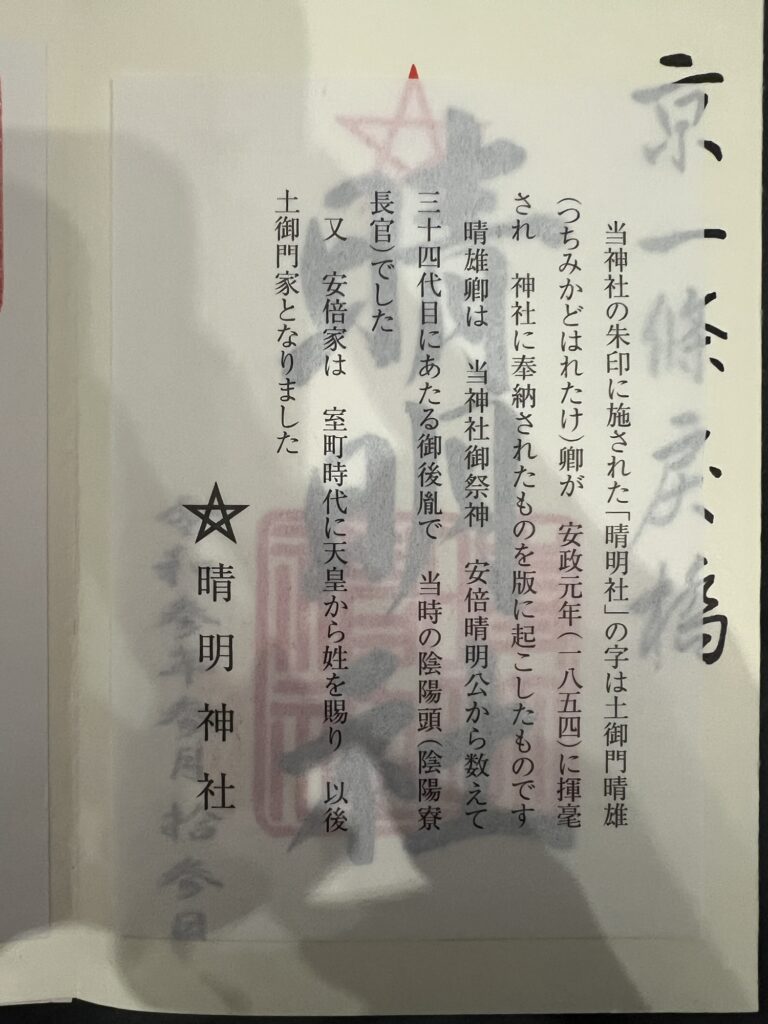 京一條戻橋
当神社の朱印に施された「晴明社」の字は土御門晴雄
(つちみかどはれたけ)卿が 安政元年(一八五四)に揮毫
され 神社に奉納されたものを版に起こしたものです
晴雄卿は 当神社御祭神 安倍晴明公から数えて
三十四代目にあたる御後胤で 当時の陰陽頭(陰陽寮
長官)でした
又 安倍家は 室町時代に天皇から姓を賜り 以後
土御門家となりました
晴明神社
晴明社